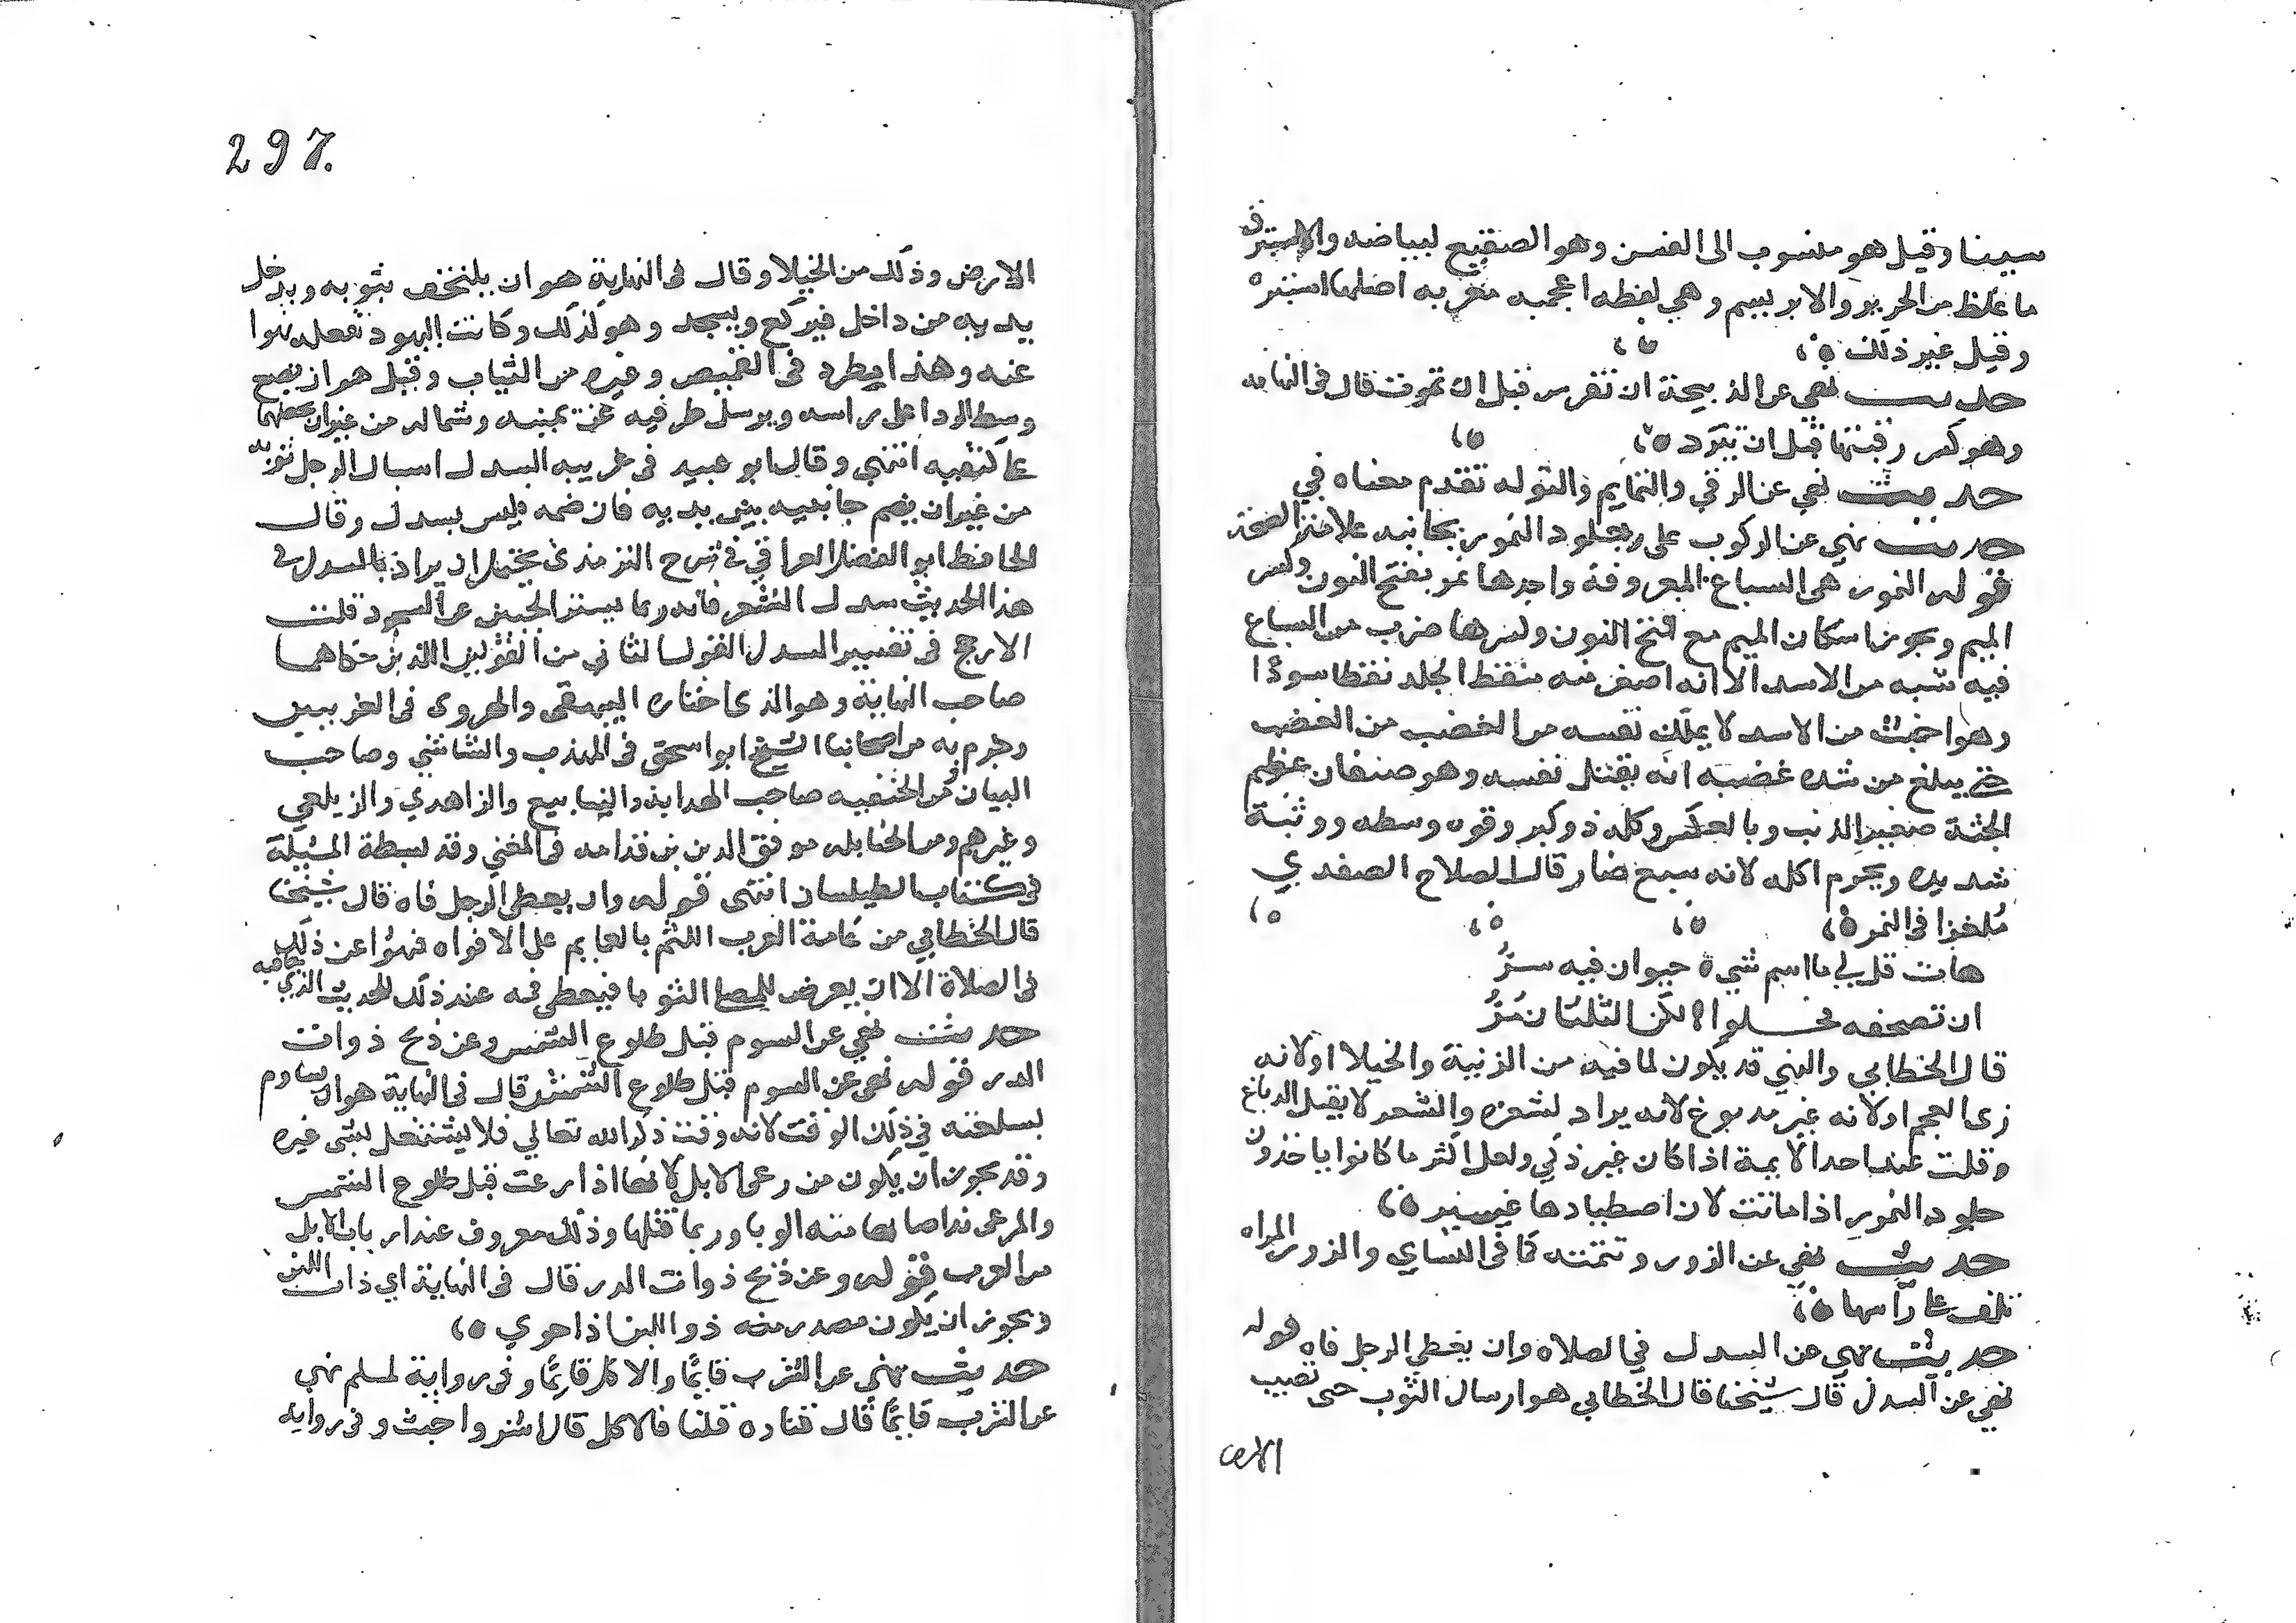 سينا وقيل هو منسوب الى القس وهو الصقيع لبياضه والاستبرق
ما غلظ من الحرير والابريسم وهي لفظه اعجميه معربه اصلها استبره
وقيل غير ذلك ه
حديث نهي عن الذبيحة ان تفرس قبل ان تموت قال في النهايه
وهو كسر رقبتها قبل ان تبرد ه
حديث نهي عن الرقي والتمايم والتوله تقدم معناه في
حديث نهي عن الركوب على جلود النمور بجانبه علامة الصحة
قوله النمور هي السباع المعروفة واحدها نمر بفتح النون وكسر
الميم ويجوز اسكان الميم مع فتح النون وكسرها ضرب من السباع
فيه شبه من الاسد الا انه اصغر منه منقط الجلد نقطا سودا
وهو اخبث من الاسد لا يملك نفسه من الغضب من الغضب
حتى يبلغ من شده غضبه انه يقتل نفسه وهو صنفان عظيم
الجثة صغير الذنب وبالعكس وكله ذو كبر وقوه وسطوه ووثبة
شديده ويحرم اكله لانه سبع ضار قال الصلاح الصفدي
مُلغزا في النمر ه
هات قل لي ما اسم شيء ه حيوان فيه سرُّ
ان تصحفه فحلوا ه لكن الثلثان مُرُّ
قال الخطابي والنهي قد يكون لما فيه من الزينة والخيلا او لانه
زي العجم او لانه غير مدبوغ لانه يراد لشعره والشعر لا يقبل الدباغ
وقلت عند احد الايمة اذا كان غير ذكي ولعل اكثر ما كانوا ياخذون
جلود النمور اذا ماتت لان اصطيادها عسير ه
حديث نهي عن الزور وتتمته كما في النساي والزور المراه
تلف على راسها ه
حديث نهي عن السدل في الصلاه وان يغطي الرجل فاه قوله
نهي عن السدل قال شيخنا قال الخطابي هو ارسال الثوب حتى تصيب
الارض
297.
الارض وذلك من الخيلا وقال في النهاية هو ان يلتحف بثوبه ويدخل
يديه من داخل فيركع ويسجد وهو كذلك وكانت اليهود تفعله نهوا
عنه وهذا يطرد في القميص وغيره من الثياب وقيل هو ان يضع
وسط الردا على راسه ويرسل طرفيه عن يمينه وشماله من غير ان يجعلهما
على كتفيه انتهي وقال ابو عبيد في غريبه السدل اسبال الرجل ثوبه
من غير ان يضم جانبيه بين يديه فان ضمه فليس بسدل وقال
الحافظ ابو الفضل العراقي في شرح الترمذي يحتمل ان يراد بالسدل في
هذا الحديث سدل الشعر فانه ربما يستر الجبين عن السجود قلت
الارجح في تفسير السدل القول الثاني من القولين اللذين حكاهما
صاحب النهاية وهو الذي اختاره البيهقي والهروي في الغريبين
وجزم به من اصحابنا الشيخ ابو اسحق في المهذب والشاشي وصاحب
البيان ومن الحنفيه صاحب الهداية والينابيع والزاهدي والزيلعي
وغيرهم ومن الحنابله موفق الدين بن قدامه في المغني وقد بسطة المسيلة
في كتاب الطيلسان انتهى قوله وان يغطي الرجل فاه قال شيخنا
قال الخطابي من عامة العرب التلثم بالعمايم على الافواه فنهوا عن ذلك
في الصلاة الا ان يعرض للمصلي التثوب فيغطي فمه عند ذلك للحديث الذي جا فيه
حديث نهي عن السوم قبل طلوع الشمس وعن ذبح ذوات
الدر قوله نهي عن السوم قبل طلوع الشمس قال في النهاية هو ان يساوم
بسلعته في ذلك الوقت لانه وقت ذكر الله تعالي فلا يشتغل بشي غيره
وقد يجوز ان يكون من رعي الابل لانها اذا رعت قبل طلوع الشمس
والمرعى ند اصابها منه الوبا وربما قتلها وذلك معروف عند ارباب الابل
من العرب قوله وعن ذبح ذوات الدر قال في النهاية اي ذات اللبن
ويجوز ان يكون مصدر منه ذو اللبن اذا جري ه
حديث نهي عن الشرب قايمًا والاكل قايمًا وفي رواية لمسلم نهي
عن الشرب قايمًا قال قتاده قلنا فالاكل قال اشر واخبث وفي روايه